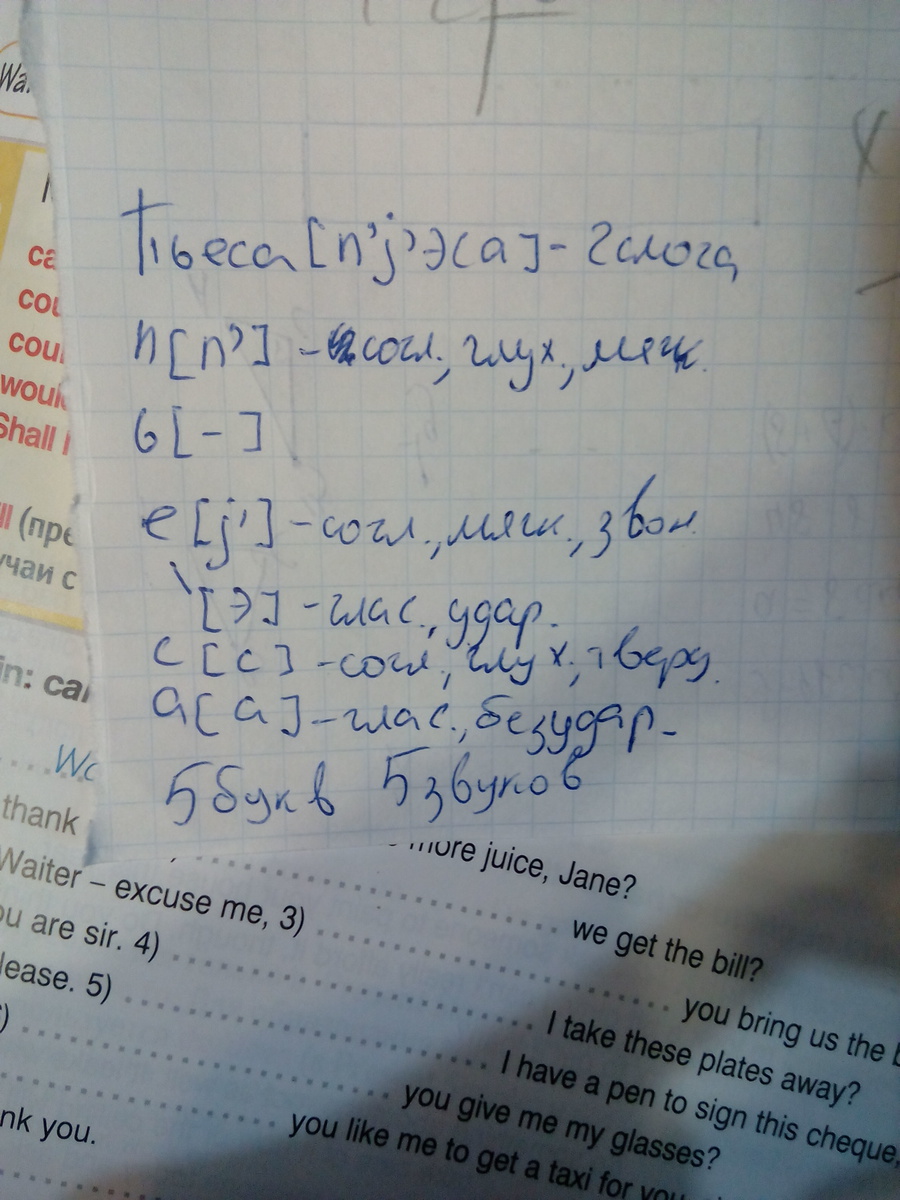 Wa
ca
cou
coul
woul
Shall I
ll (пре
учаи с
in: ca
Wo
thank
Пьеса [п'j'эса] - 2 слога
п [п'] - согл., глух., мягк.
ь [-]
е [j'] - согл., мягк., звон.
\ [э] - глас., удар.
с [с] - согл., глух., тверд.
а [а] - глас., безудар.
5 букв 5 звуков
more juice, Jane?
Waiter – excuse me, 3) we get the bill?
ou are sir. 4) you bring us the b
lease. 5) I take these plates away?
) I have a pen to sign this cheque,
you give me my glasses?
nk you. you like me to get a taxi for you